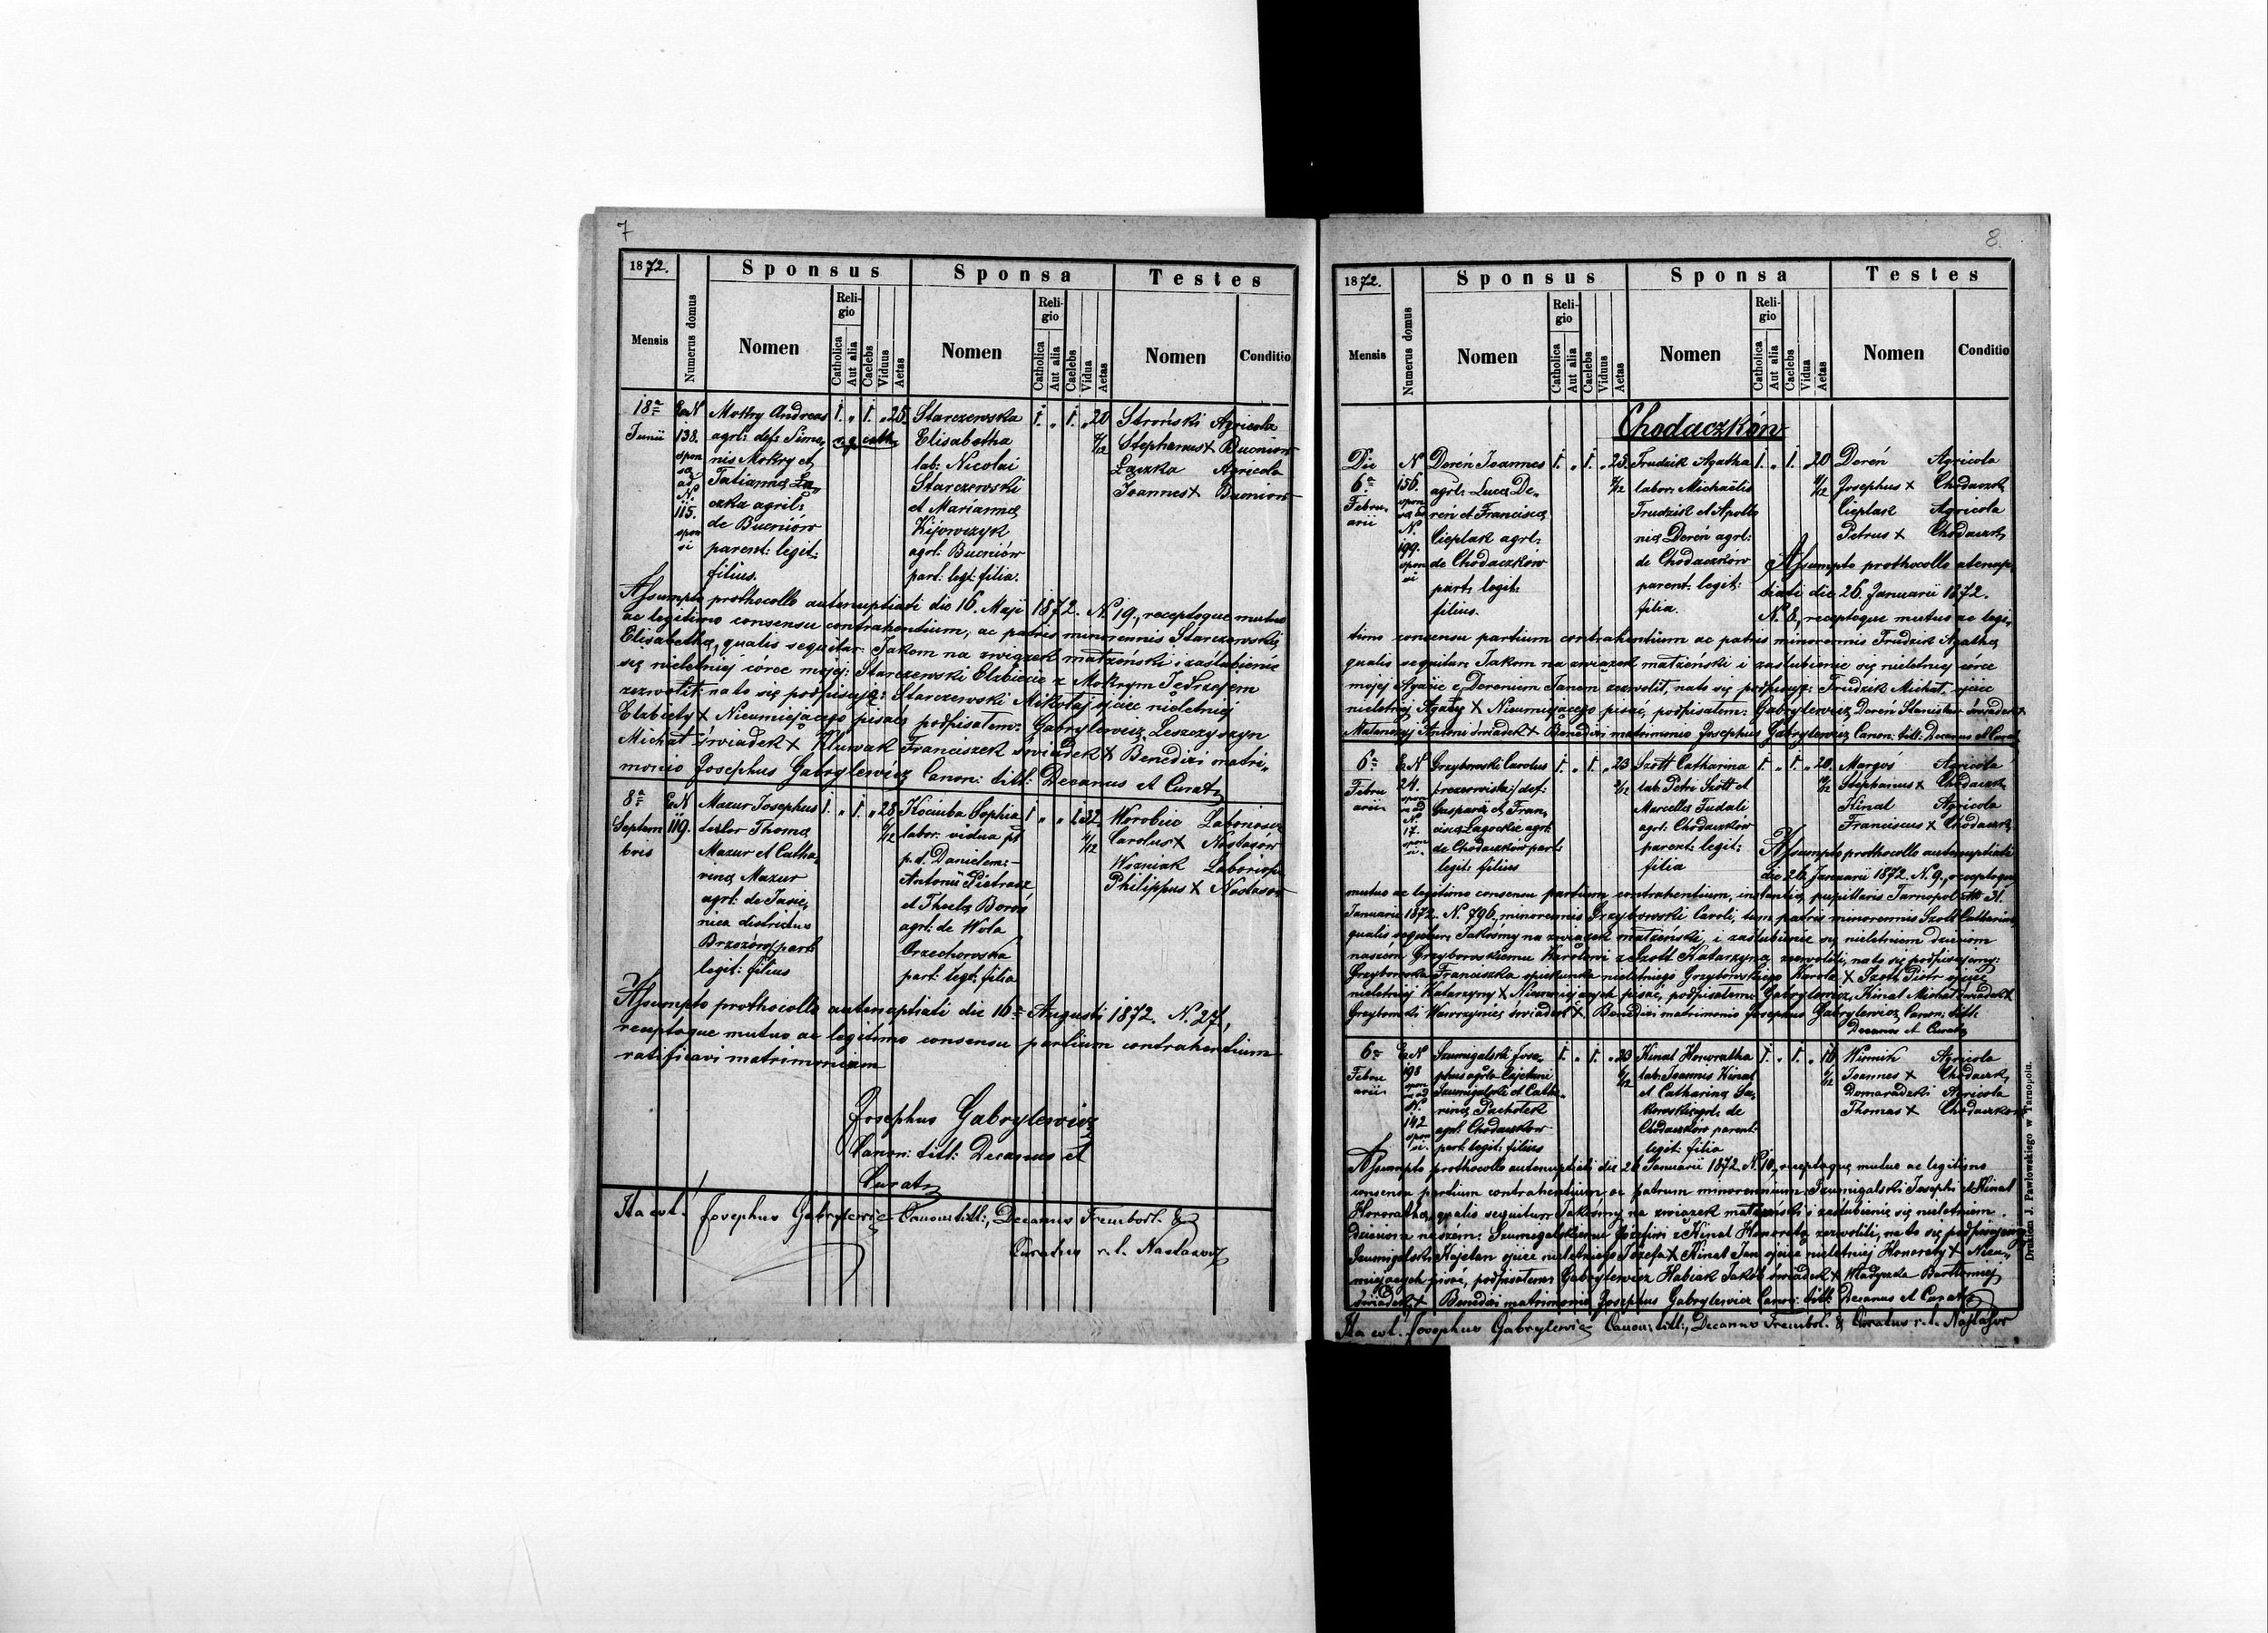 7
1872.
Sponsus
Sponsa
Testes
Mensis
Numerus domus
Nomen
Religio
Catholica
Aut alia
Caelebs
Viduus
Aetas
Nomen
Religio
Catholica
Aut alia
Caelebs
Vidua
Aetas
Nomen
Conditio
18a Junii
Ex N 138. sponsa ad N. 115. sponsi
Mokry Andreas
agrl: def: Simeo
nis Mokry et
Tatianna La„
czka agril:
de Bucniów
parent: legit:
filius.
1. „ 1. „ 25.
r. g. cath.
Starczewska
Elisabetha
lab: Nicolai
Starczewski
et Marianna
Kijowczyk
agrl: Bucniów
part: legt: filia.
1. „ 1. „ 20
Stroński Agricola
Stephanus + Bucniow
Łączka Agricola
Joannes + Bucniow
Assumpto prothocollo autenuptiati die 16. Maji 1872. N. 19., receptoque mutuo
ac legitimo consensu contrahentium, ac patris minorennis Starczewskie
Elisabetha, qualis sequitur: Jakom na związek małżeński i zaślubienie
się nieletniej córce mojej: Starczewski Elżbiecie z Mokrym Jędrzejem
zezwolił: na to się podpisuję: Starczewski Mikołaj ojciec nieletniej
Elżbiety + Nieumiejącego pisać, podpisałem: Gabrylewicz, Leszczyszyn
Michał świadek + Kluwak Franciszek świadek + Benedixi matri„
monio Josephus Gabrylewicz Canon: titl: Decanus et Curat
8a Septembris
Ex N 119.
Mazur Josephus
textor Thoma
Mazur et Catha„
rina Mazur
agrl: de Jasie„
nica districtus
Brzozów part:
legit: filius
1. „ 1. „ 28
Kociuba Sophia
labor. vidua pt
p. d. Danielem:-
Antonii Pietrasz
et Thecla Boroń
agrl: de Wola
Orzechowska
part: legt: filia
1 „ „ 1. 32.
Worobiec Laboriosus
Carolus + Nastasów
Wozniak Laborios
Philippus + Nastasow
Assumpto prothocollo autenuptiati die 16a Augusti 1872. N. 27,
receptoque mutuo ac legitimo consensu partium contrahentium
ratificavi matrimonium
Josephus Gabrylewicz
Canon: titl: Decanus et
Curat
Ita est. Josephus Gabrylewicz Canon: titl:, Decanus Trembowl. &
Curatus r. l. Nastasow
8.
1872.
Sponsus
Sponsa
Testes
Mensis
Numerus domus
Nomen
Religio
Catholica
Aut alia
Caelebs
Viduus
Aetas
Nomen
Religio
Catholica
Aut alia
Caelebs
Vidua
Aetas
Nomen
Conditio
Chodaczków
Die 6a Februarii
N 156. sponsa ad N. 199. sponsi
Dereń Joannes
agrl: Luca De„
reń et Francisca
Cieplak agrl:
de Chodaczków
part: legit:
filius.
1. „ 1. „ 25.
Trudzik Agatha
labor: Michaelis
Trudzik et Apollo
nia Dereń agrl:
de Chodaczków
parent: legit:
filia.
1. „ 1. „ 20
Dereń Agricola
Josephus + Chodaczk
Cieplak Agricola
Petrus + Chodaczk
Assumpto prothocollo atenup„
tiati die 26. Januarii 1872.
N. 8., receptoque mutuo ac legi„
timo consensu partium contrahentium ac patris minorennis Trudzik Agatha
qualis sequitur: Jakom na związek małżeński i zaślubienie się nieletniej córce
mojej Agacie z Dereniem Janem zezwolił, na to się podpisuję: Trudzik Michał, ojciec
nieletniej Agaty + Nieumiejącego pisać, podpisałem: Gabrylewicz, Dereń Stanisław świadek +
Antoni świadek + Benedixi matrimonio Josephus Gabrylewicz Canon: titl: Decanus et Curat
6a Februarii
Ex N 24. sponsa ad N. 17. sponsi
Grzybowski Carolus
def:
Gasparis et Fran„
cisca Lagockie agrl:
de Chodaczków part:
legit: filius
1. „ 1. „ 23
Szott Catharina
lab: Petri Szott et
Marcella Judali
agrl: Chodaczków
parent: legit:
filia
1. „ 1. „ 20.
Margoś Agricola
Stephanus + Chodaczk
Kinal Agricola
Franciscus + Chodaczk
Assumpto prothocollo autenuptiati
die 26. Januarii 1872. N. 9., receptoque
mutuo ac legitimo consensu partium contrahentium, pupillaris Tarnopol 31.
Januarii 1872. N. 796, minorennis Grzybowski Caroli, tum patris minorennis Szott Catharina,
qualis sequitur: Jakośmy na związek małżeński, i zaślubienie się nieletniem dzieciom
naszem: Grzybowskiemu Karolowi z Szott Katarzyną zezwolili, na to się podpisujemy:
Grzybowska Franciszka opiekunka nieletniego Grzybowskiego Karola + Szott Piotr ojciec
nieletniej Katarzyny + Nieumiejących pisać, podpisałem: Gabrylewicz, Kinal Michał świadek +
Grzybowski Wawrzyniec świadek +. Benedixi matrimonio Josephus Gabrylewicz Canon: titl:
Decanus et Curat
6a Februarii
Ex N 198 sponsa ad N. 142 sponsi
Szumigalski Jose„
phus agrla Cajetani
Szumigalski et Catha„
rina Pachołek
agrl: Chodaczków
part: legit: filius
1. „ 1. „ 20
Kinal Honoratha
lab: Joannis Kinal
et Catharina Sa„
kowski agrl: de
Chodaczków parent:
legit: filia
1. „ 1. „ 16
Winnik Agricola
Joannes + Chodaczk
Domaradzki Agricola
Thomas + Chodaczkow
Assumpto prothocollo autenuptiati die 26 Januarii 1872 N. 10., receptoque mutuo ac legitimo
consensu partium contrahentium ac patrum minorennium: Szumigalski Josephi et Kinal
Honoratha, qualis sequitur: Jakośmy na związek małżeński i zaślubienie się nieletniem
dzieciom naszem: Szumigalskiemu Józefowi z Kinal Honoratą zezwolili, na to się podpisujemy
Szumigalski Kajetan ojciec nieletniego Józefa + Kinal Jan ojciec nieletniej Honoraty + Nieu„
miejących pisać, podpisałem: Gabrylewicz Habiak Jakób świadek + Władyczka Bartłomiej
świadek + Benedixi matrimonio Josephus Gabrylewicz Canon: titl: Decanus et Curat
Ita est. Josephus Gabrylewicz Canon: titl:, Decanus Trembol. & Curatus r. l. Nastasow
Drukiem J. Pawłowskiego w Tarnopolu.